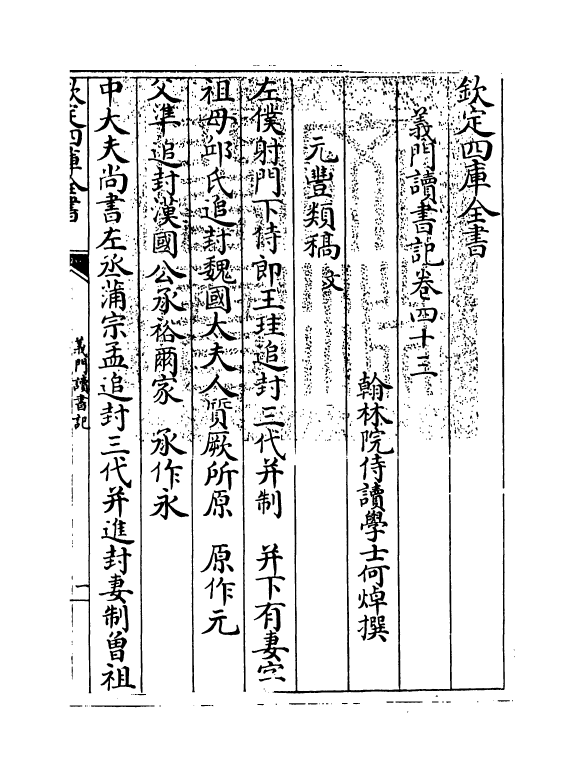 欽定四庫全書
義門讀書記卷四十三
翰林院侍讀學士何焯撰
元豐類稿文
左僕射門下侍郎王珪追封三代并制　并下有妻字
祖母邱氏追封魏國太夫人質厥所原　原作元
父準追封漢國公承裕爾家　承作永
中大夫尚書左丞蒲宗孟追封三代并進封妻制曽祖
欽定四庫全書
義門讀書記
一